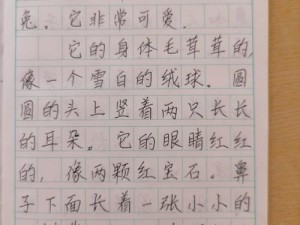 兔。它非常可爱。
它的身体毛茸茸的,
像一个雪白的绒球。圆
圆的头上竖着两只长长
的耳朵。它的眼睛红红
的,像两颗红宝石。鼻
子下面长着一张小小的